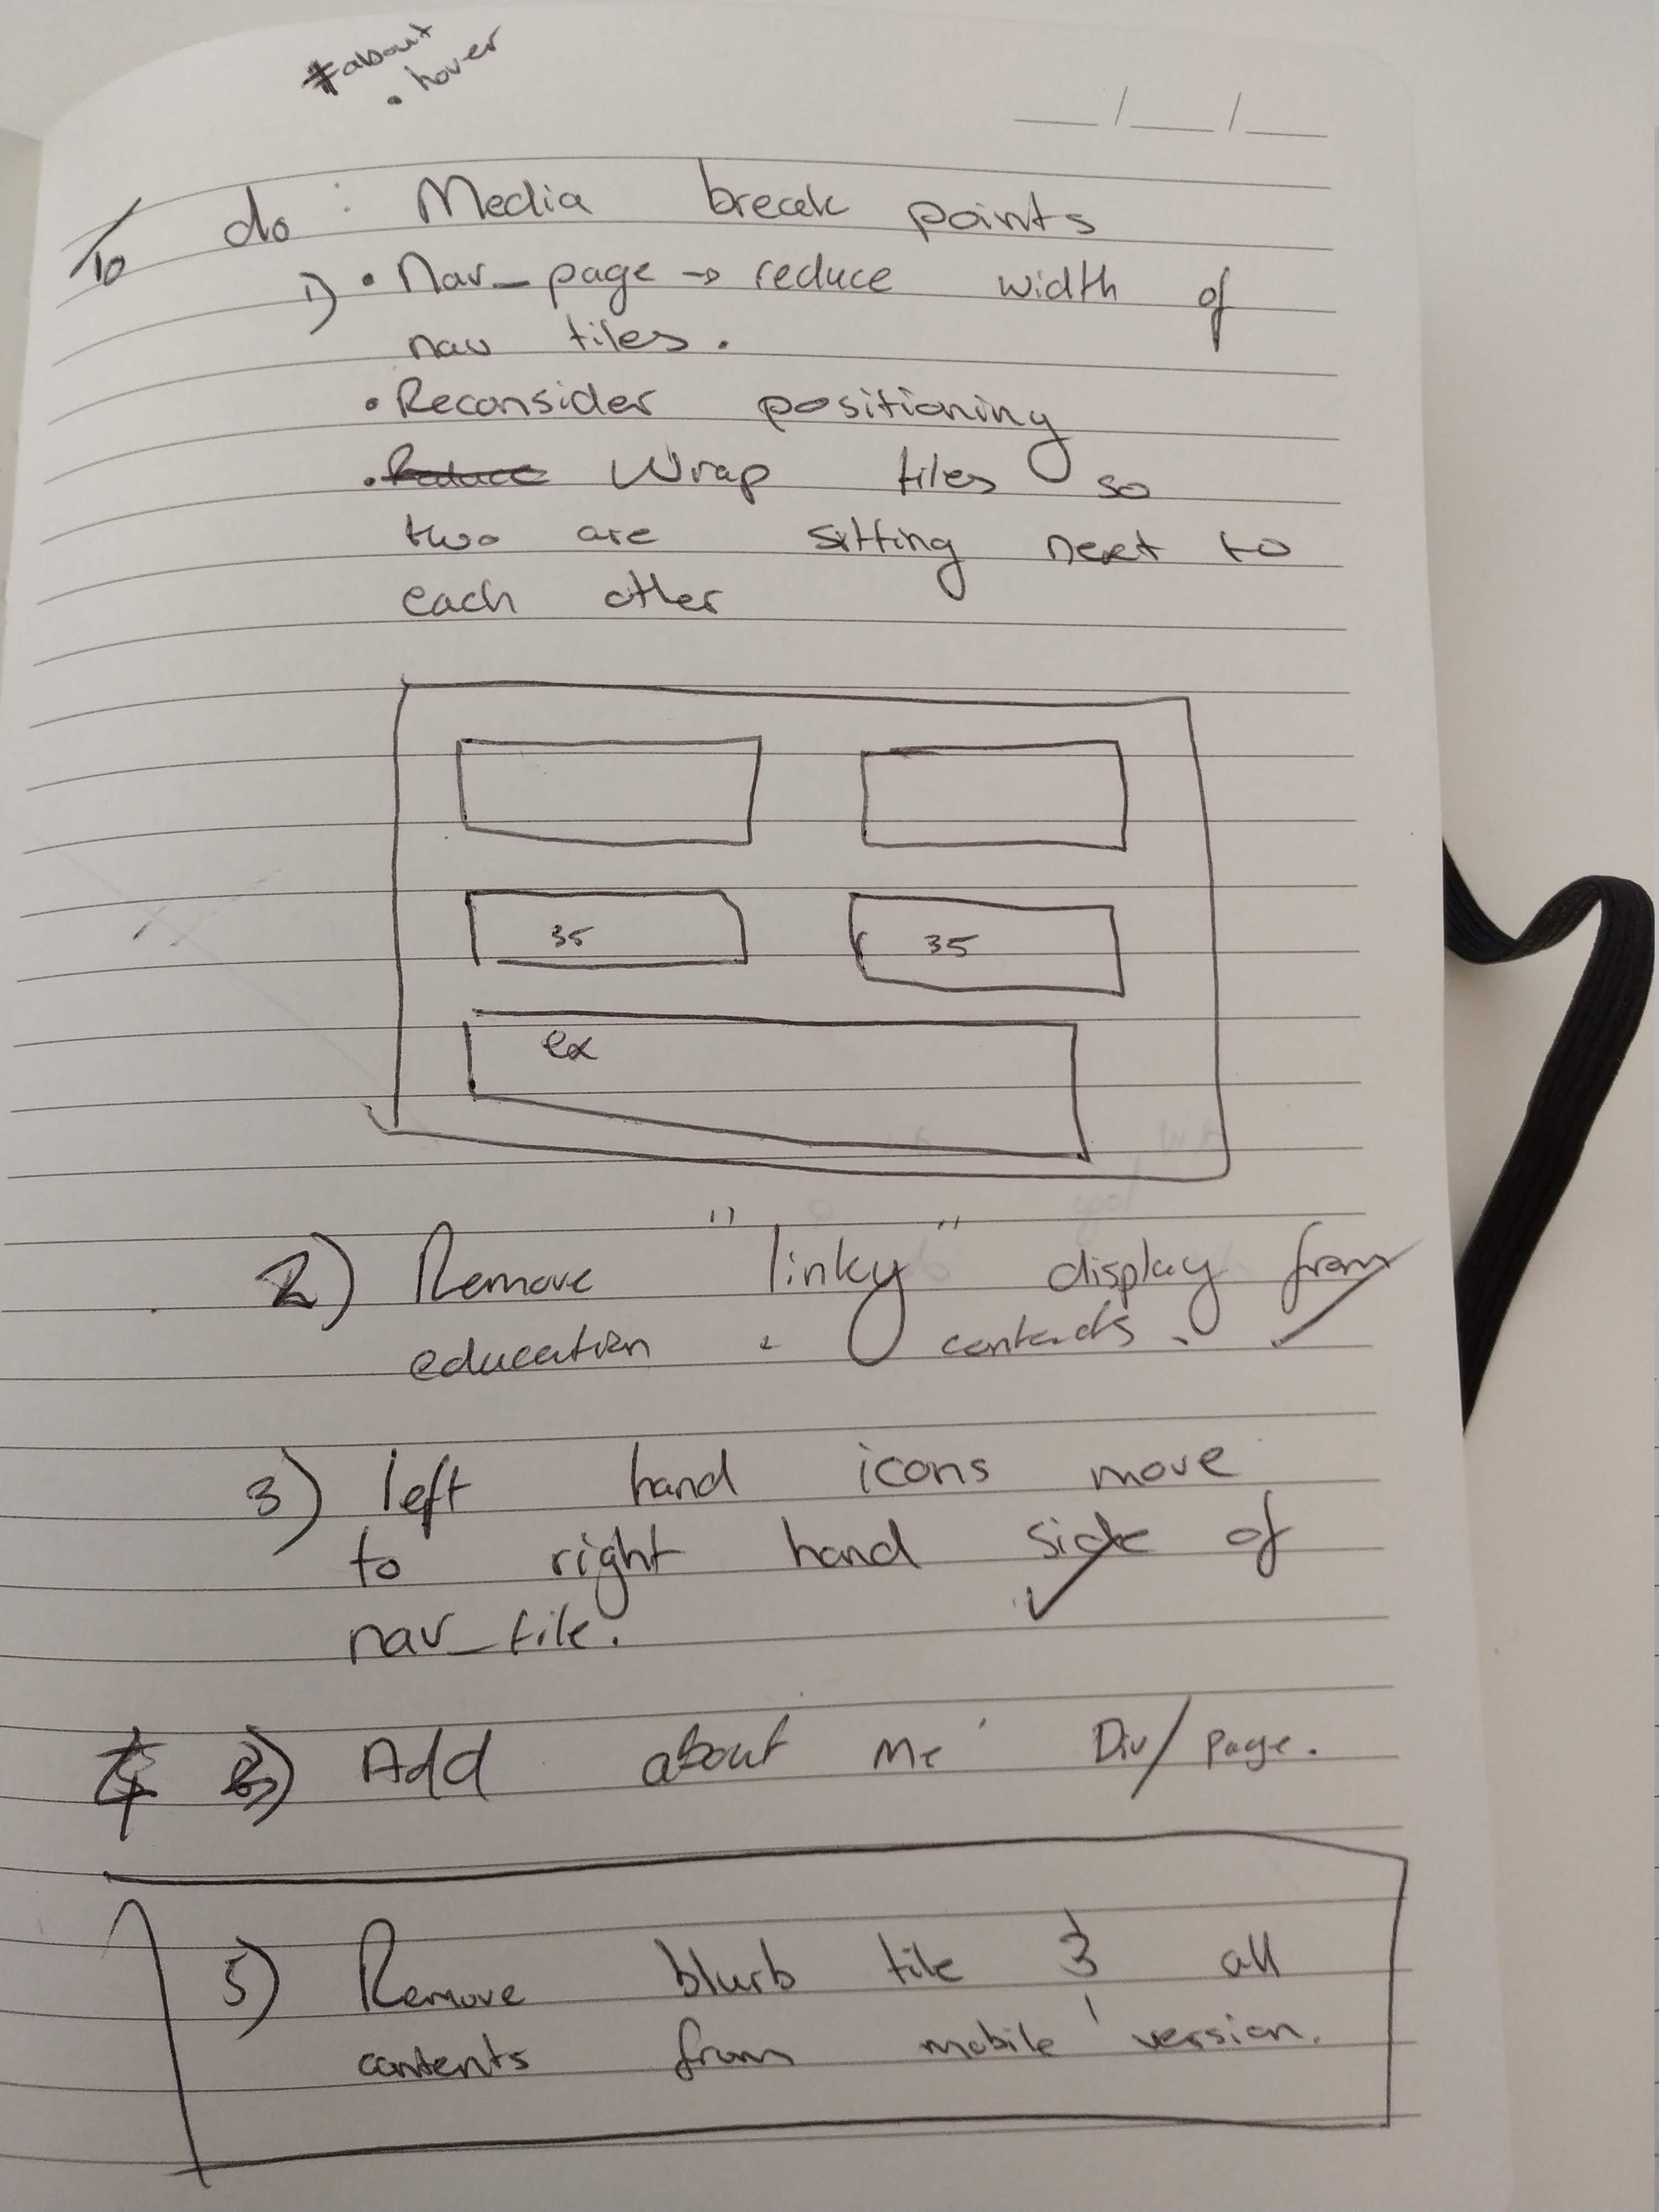 #about
. hover
__/__/__
To do : Media break points
1) • Nav_page → reduce width of
nav tiles.
• Reconsider positioning
• Wrap tiles so
two are sitting next to
each other
35 35
ex
2) Remove "linky" display from
education contacts.
3) left hand icons move
to right hand side of
nav_tile.
4 Add about me Div/page.
5) Remove blurb tile & all
contents from mobile version.